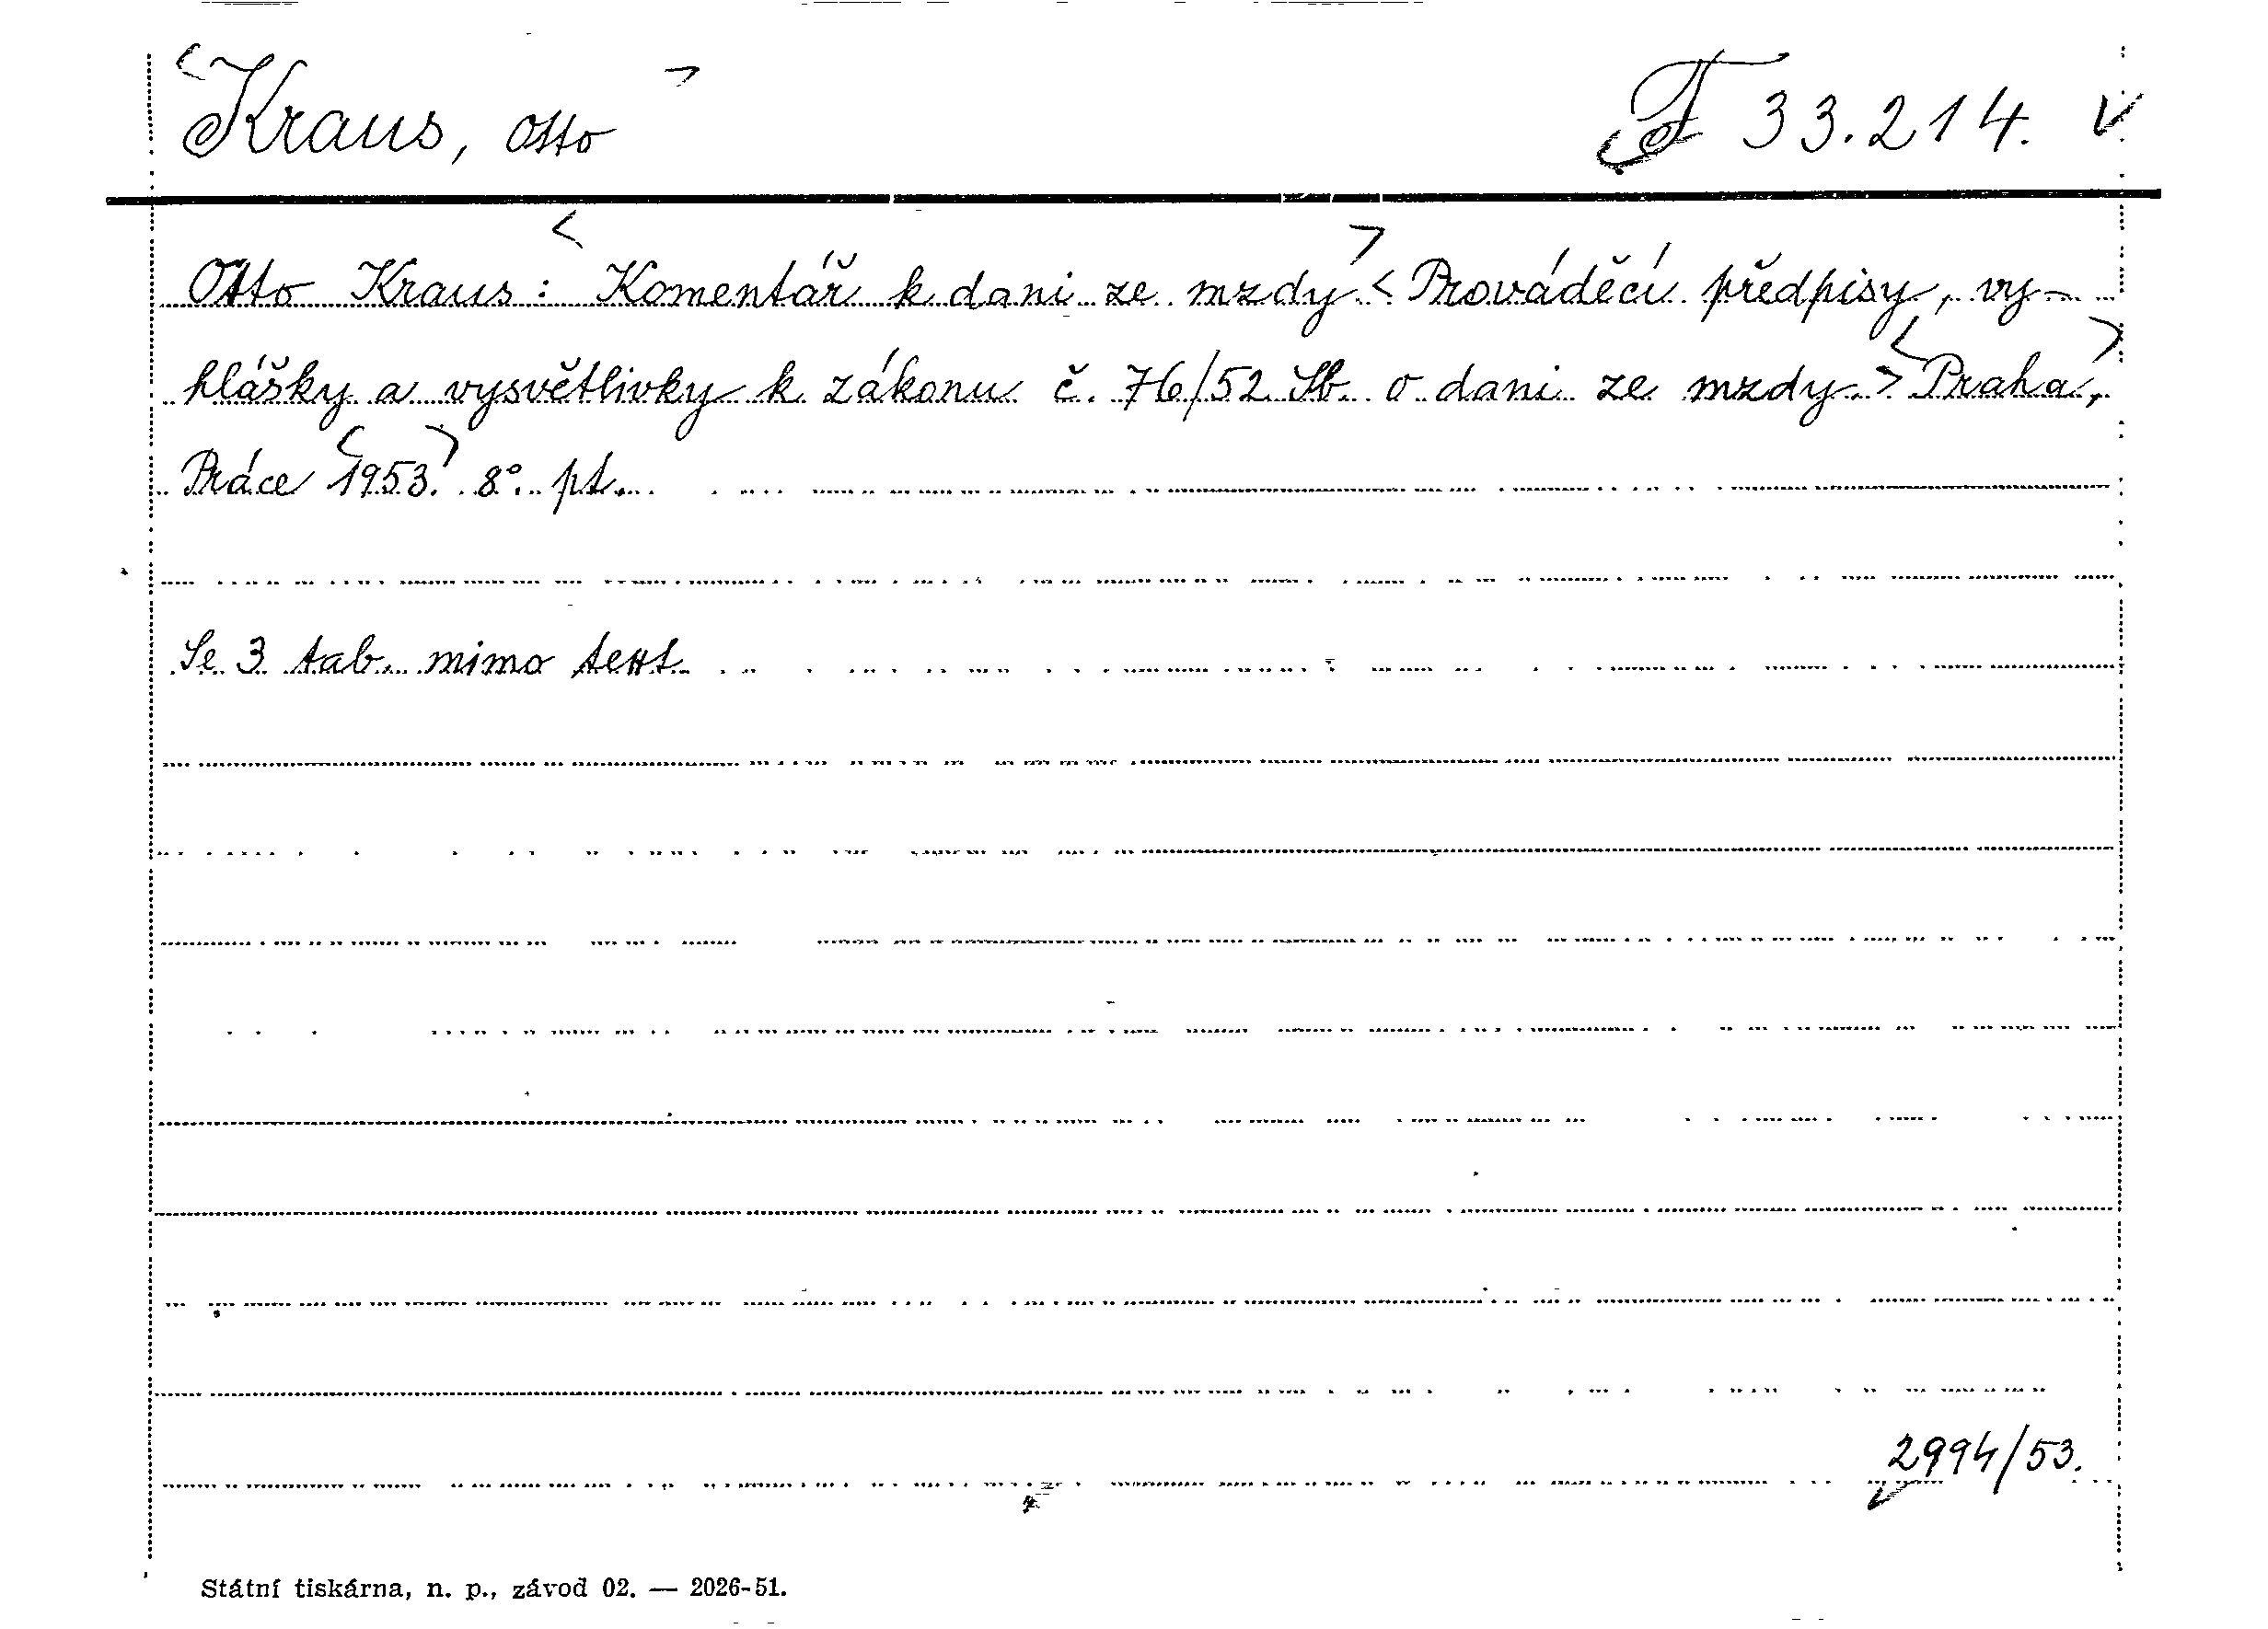 <Kraus, Otto> F 33.214. v
Otto Kraus: <Komentář k dani ze mzdy> <Prováděcí předpisy, vy-
hlášky a vysvětlivky k zákonu č. 76/52 Sb. o dani ze mzdy.> <Praha,>
Práce <1953.> 8°. pt.
Se 3 tab. mimo text.
2994/53.
Státní tiskárna, n. p., závod 02. — 2026-51.